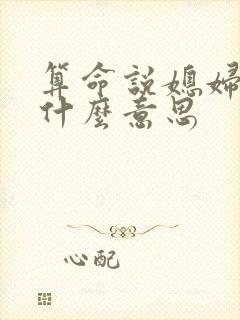 算命說媳婦
什麼意思
心配